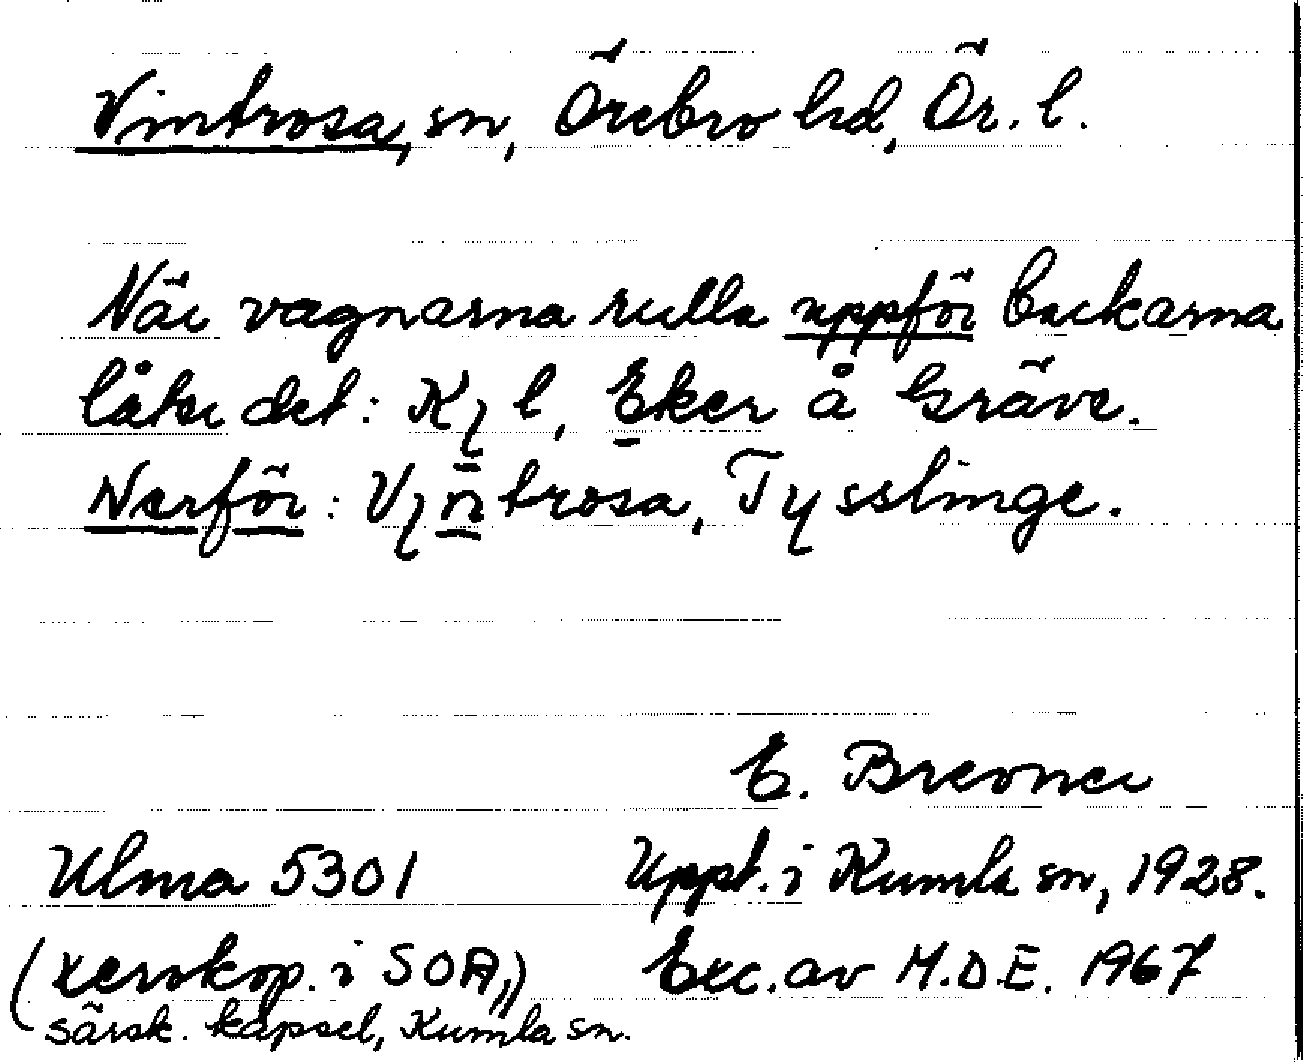 Vintrosa, sn, Örebro hd, Ör. l.
När vagnarna rulla uppför backarna
låter det: Kɿl, Eker å Gräve.
Nerför: Vɿn̄trosa, Tysslinge.
E. Brevner
Ulma 5301
Uppt. i Kumla sn, 1928.
(xerokop. i SOA,)
Exc. av M.D.E. 1967
särsk. kapsel, Kumla sn.